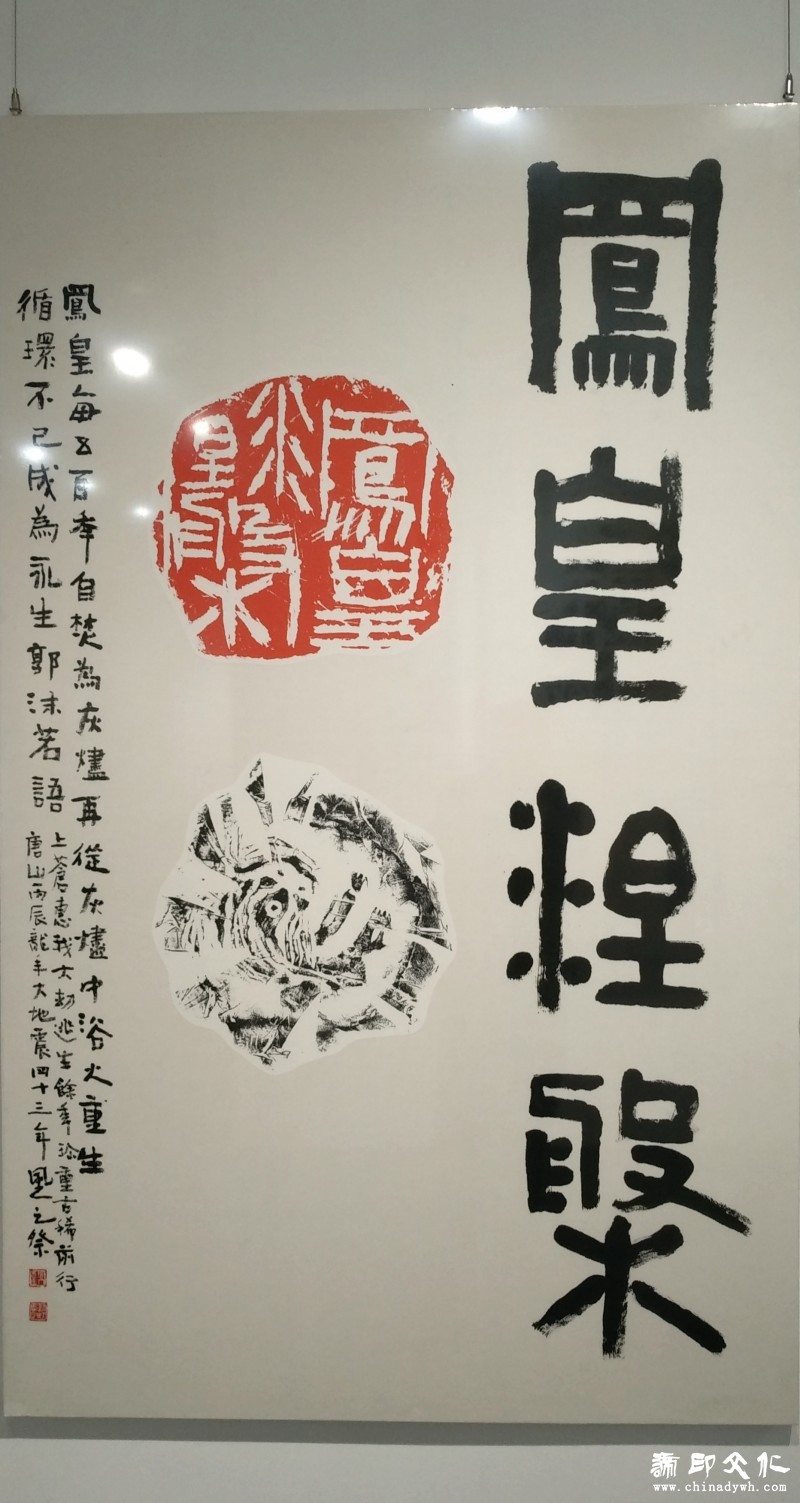 鳳皇涅槃
鳳皇
涅槃
鳳皇每五百年自焚為灰燼再從灰燼中浴火重生
循環不已成為永生郭沫若語
上蒼惠我大劫逃生餘年珍重古稀前行
唐山丙辰龍年大地震四十三年之祭
印文化
www.chinadywh.com